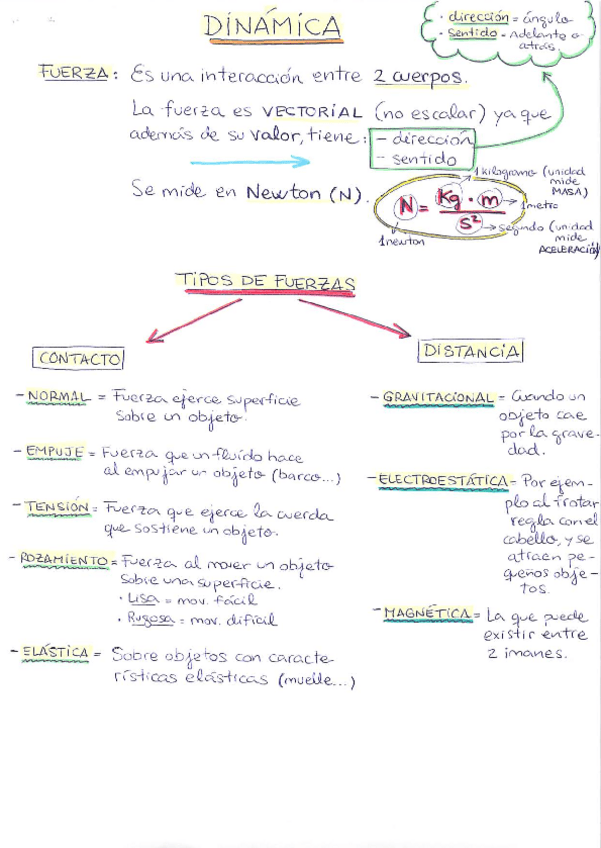 DINÁMICA
· dirección = ángulo
· sentido = Adelante o
atrás.
FUERZA: Es una interacción entre 2 cuerpos.
La fuerza es VECTORIAL (no escalar) ya que
además de su valor, tiene:
- dirección
- sentido
Se mide en Newton (N).
1 kilogramo (unidad
mide
MASA)
N = Kg · m
s²
1 metro
segundo (unidad
mide
ACELERACIÓN)
1 newton
TIPOS DE FUERZAS
CONTACTO
- NORMAL = Fuerza ejerce superficie
sobre un objeto.
- EMPUJE = Fuerza que un fluído hace
al empujar un objeto (barco...)
- TENSIÓN = Fuerza que ejerce la cuerda
que sostiene un objeto.
- ROZAMIENTO = Fuerza al mover un objeto
sobre una superficie.
· Lisa = mov. fácil
· Rugosa = mov. difícil
- ELÁSTICA = Sobre objetos con caracte-
rísticas elásticas (muelle...)
DISTANCIA
- GRAVITACIONAL = Cuando un
objeto cae
por la grave-
dad.
- ELECTROESTÁTICA = Por ejem-
plo al frotar
regla con el
cabello, y se
atraen pe-
queños obje-
tos.
- MAGNÉTICA = La que puede
existir entre
2 imanes.